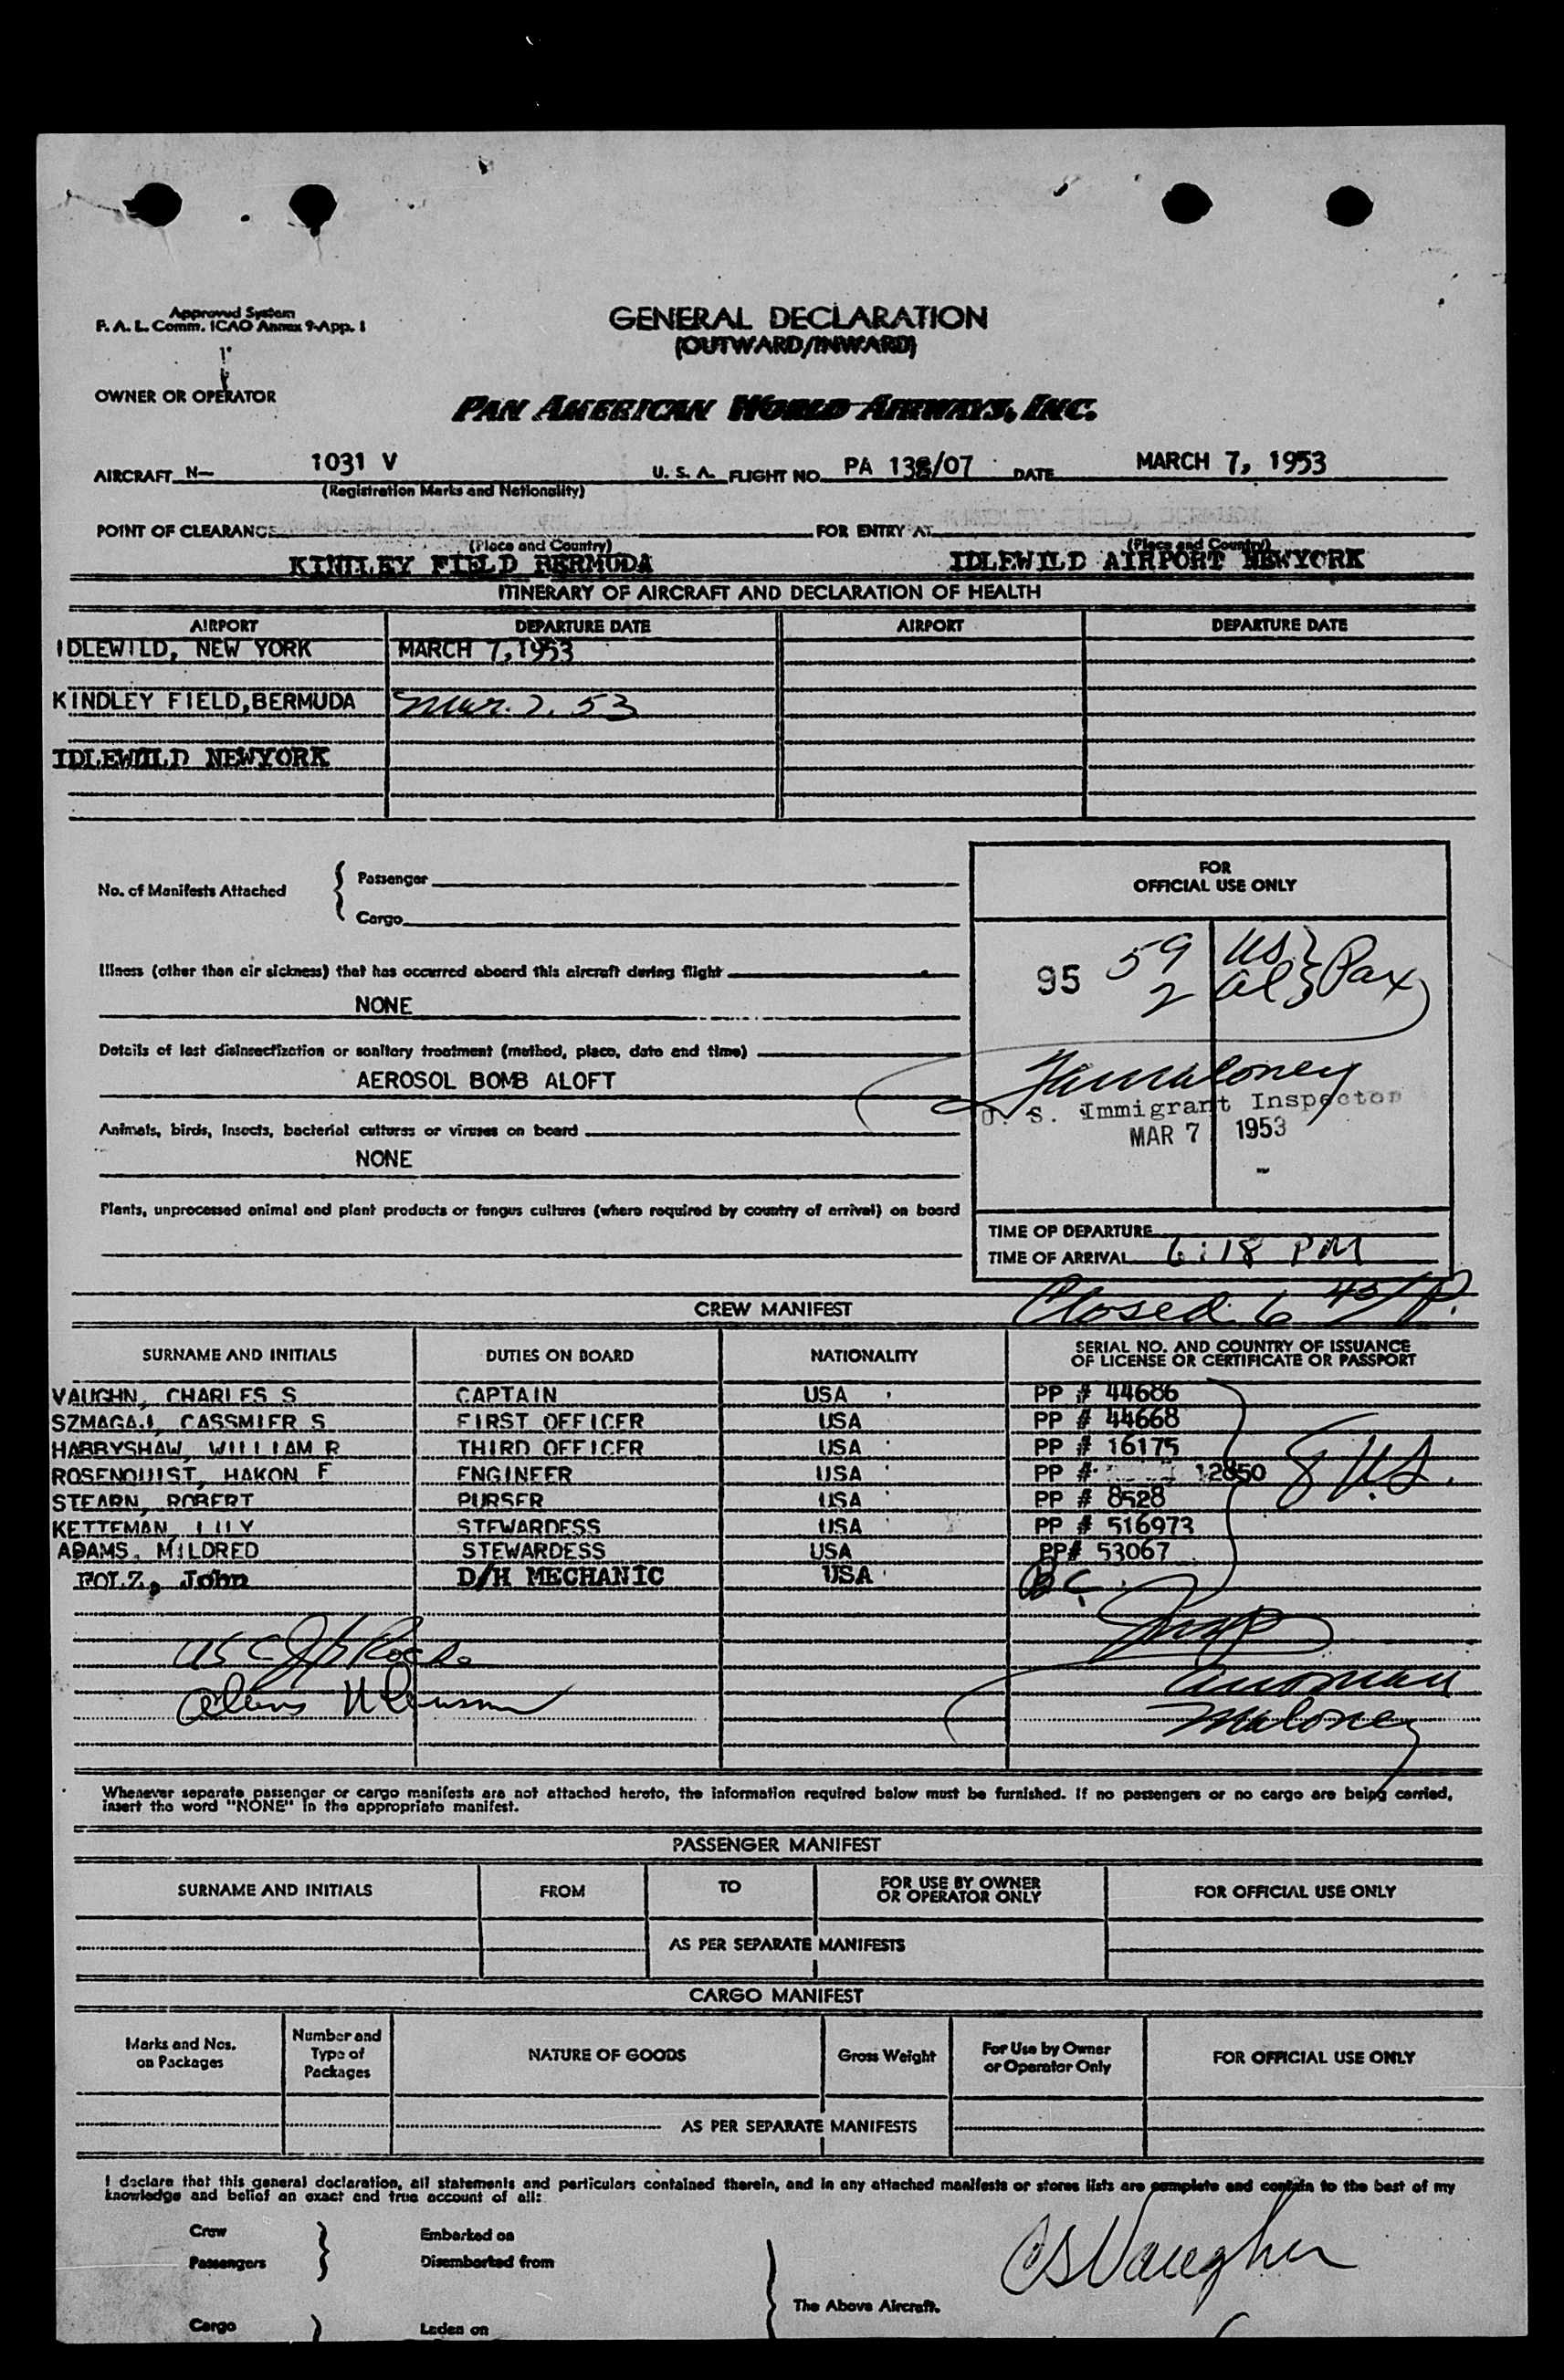 Approved System
F. A. L. Comm. ICAO Annex 9-App. 1
GENERAL DECLARATION
(OUTWARD/INWARD)
OWNER OR OPERATOR
PAN AMERICAN WORLD AIRWAYS, INC.
AIRCRAFT N— 1031 V U. S. A. FLIGHT NO. PA 138/07 DATE MARCH 7, 1953
(Registration Marks and Nationality)
POINT OF CLEARANCE FOR ENTRY AT
(Place and Country) (Place and Country)
KINDLEY FIELD BERMUDA IDLEWILD AIRPORT NEWYORK
ITINERARY OF AIRCRAFT AND DECLARATION OF HEALTH
AIRPORT DEPARTURE DATE AIRPORT DEPARTURE DATE
IDLEWILD, NEW YORK MARCH 7, 1953
KINDLEY FIELD, BERMUDA Mar. 7. 53
IDLEWILD NEWYORK
No. of Manifests Attached
Passenger
Cargo
FOR
OFFICIAL USE ONLY
95 59 US
2 al Pax
Illness (other than air sickness) that has occurred aboard this aircraft during flight
NONE
Details of last disinsectization or sanitary treatment (method, place, date and time)
AEROSOL BOMB ALOFT
Maloney
U. S. Immigrant Inspector
MAR 7 1953
Animals, birds, insects, bacterial cultures or viruses on board
NONE
Plants, unprocessed animal and plant products or fungus cultures (where required by country of arrival) on board
TIME OF DEPARTURE
TIME OF ARRIVAL 6:18 PM
CREW MANIFEST Closed 6 45 P.
SURNAME AND INITIALS DUTIES ON BOARD NATIONALITY SERIAL NO. AND COUNTRY OF ISSUANCE
OF LICENSE OR CERTIFICATE OR PASSPORT
VAUGHN, CHARLES S CAPTAIN USA PP # 44686
SZMAGAJ, CASSMIER S FIRST OFFICER USA PP # 44668
HABBYSHAW, WILLIAM R THIRD OFFICER USA PP # 16175
ROSENQUIST, HAKON F ENGINEER USA PP # 12850 8 U.S.
STEARN, ROBERT PURSER USA PP # 8528
KETTEMAN, LILY STEWARDESS USA PP # 516973
ADAMS, MILDRED STEWARDESS USA PP# 53067
FOLZ, John D/H MECHANIC USA BC.
Maloney
Whenever separate passenger or cargo manifests are not attached hereto, the information required below must be furnished. If no passengers or no cargo are being carried,
insert the word "NONE" in the appropriate manifest.
PASSENGER MANIFEST
SURNAME AND INITIALS FROM TO FOR USE BY OWNER
OR OPERATOR ONLY FOR OFFICIAL USE ONLY
AS PER SEPARATE MANIFESTS
CARGO MANIFEST
Marks and Nos.
on Packages
Number and
Type of
Packages
NATURE OF GOODS
Gross Weight
For Use by Owner
or Operator Only
FOR OFFICIAL USE ONLY
AS PER SEPARATE MANIFESTS
I declare that this general declaration, all statements and particulars contained therein, and in any attached manifests or stores lists are complete and contain to the best of my
knowledge and belief an exact and true account of all:
Crew Embarked on
Passengers Disembarked from
CS Vaughn
The Above Aircraft.
Cargo Laden on